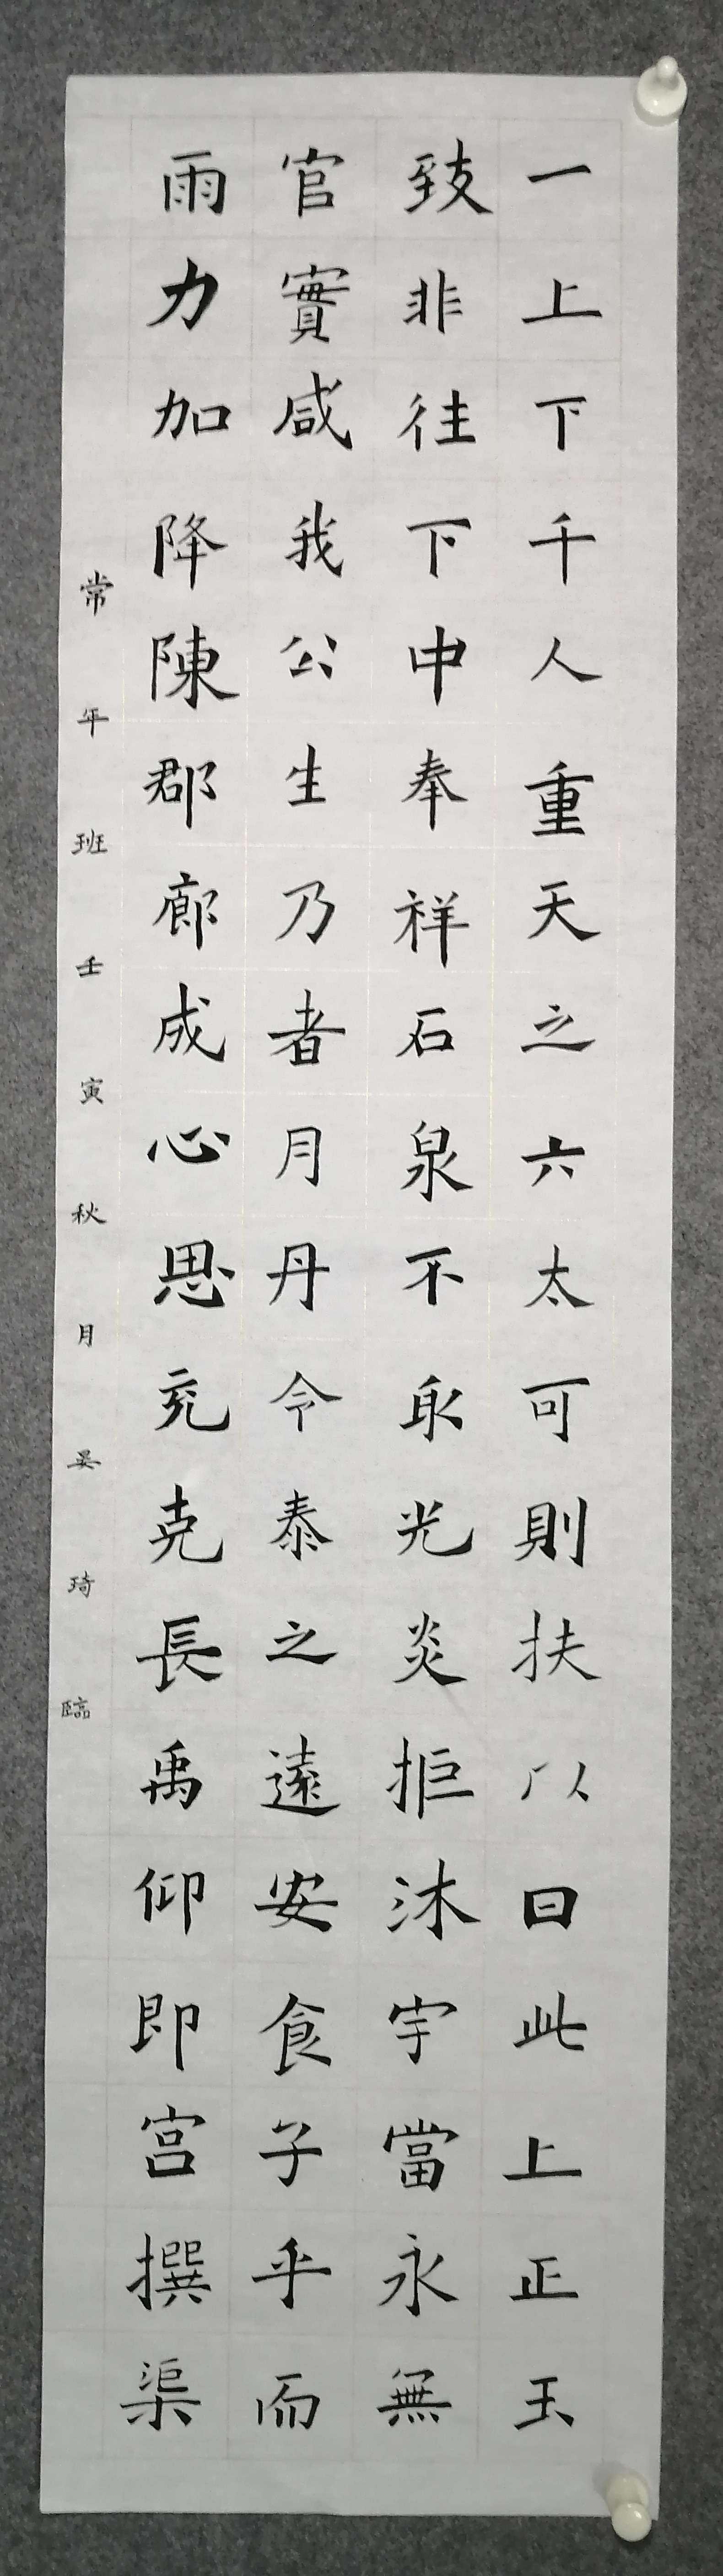 一上下千人重天之六太可則扶以曰此上正玉
致非往下中奉祥石泉不取光炎拒沐宇當永無
官實咸我公生乃者月丹令泰之遠安食子乎而
雨力加降陳郡廊成心思充克長禹仰即宫撰渠
常年班壬寅秋月吴琦臨